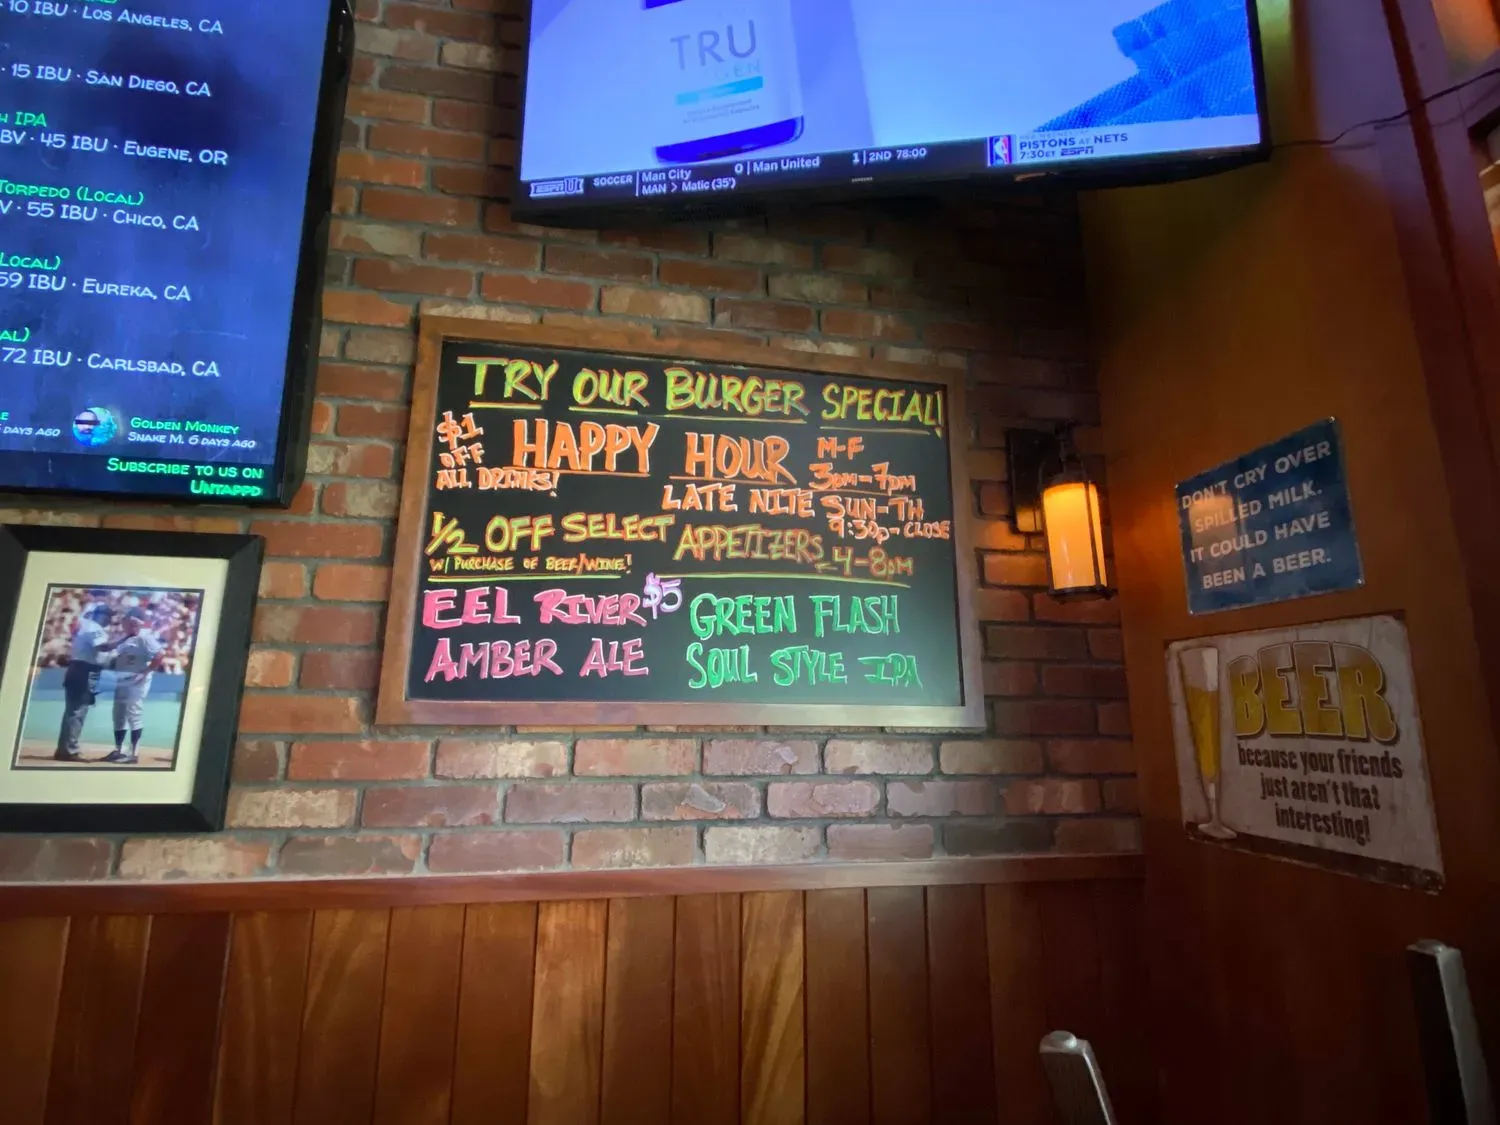 10 IBU · Los Angeles, CA
· 15 IBU · San Diego, CA
IPA
BV · 45 IBU · Eugene, OR
Torpedo (Local)
V · 55 IBU · Chico, CA
Local)
59 IBU · Eureka, CA
AL)
72 IBU · Carlsbad, CA
days ago
Golden Monkey
Snake M. 6 days ago
Subscribe to us on
Untappd
TRU
ESPNU SOCCER Man City 0 Man United 1 2ND 78:00
MAN > Matic (35')
PISTONS AT NETS
7:30ET ESPN
TRY OUR BURGER SPECIAL!
$1 OFF ALL DRINKS!
HAPPY HOUR M-F 3pm-7pm
LATE NITE SUN-TH 9:30p-CLOSE
1/2 OFF SELECT APPETIZERS 4-8pm
W/ PURCHASE OF BEER/WINE!
EEL RIVER $5
AMBER ALE
GREEN FLASH
SOUL STYLE IPA
DON'T CRY OVER
SPILLED MILK.
IT COULD HAVE
BEEN A BEER.
BEER
because your friends
just aren't that
interesting!